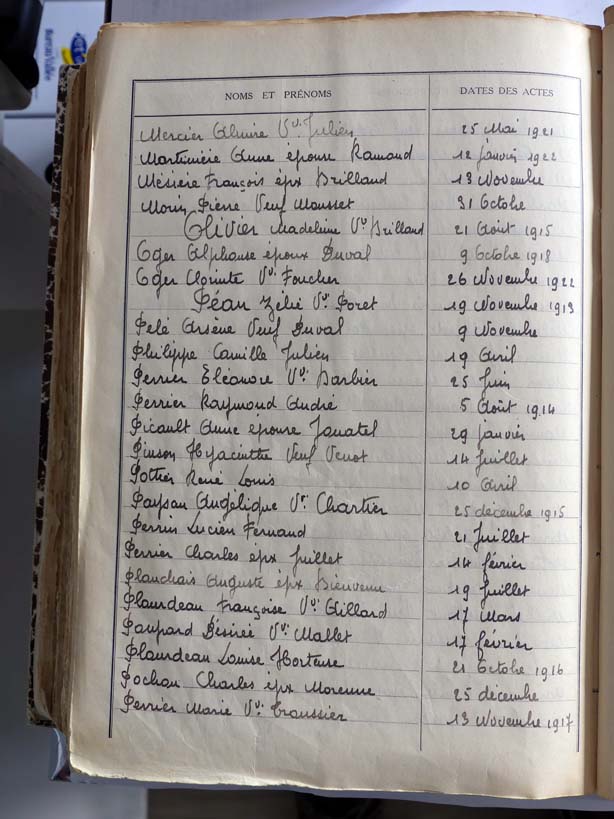 Bureau Vallée
NOMS ET PRÉNOMS DATES DES ACTES
Mercier Alvire Vve Julien 25 Mai 1921
Martinière Anne épouse Ramaud 12 janvier 1922
Mésière François épx Brilland 13 Novembre
Morin Pierre Veuf Mousset 31 Octobre
Olivier Madeleine Vve Brilland 21 Août 1915
Oger Alphonse époux Duval 9 Octobre 1918
Oger Clorinte Vve Foucher 26 Novembre 1922
Péan Zélie Vve Poret 19 Novembre 1913
Pelé Arsène Veuf Duval 9 Novembre
Philippe Camille Julien 19 Avril
Perrier Eléonore Vve Barbier 25 Juin
Perrier Raymond André 5 Août 1914
Picault Anne épouse 29 janvier
Pinson Hyacinthe Veuf 14 Juillet
Pottier René Louis 10 Avril
Paysan Angélique Vve Chartier 25 décembre 1915
Perrin Lucien Fernand 21 Juillet
Perrier Charles épx Juillet 14 février
Planchais Auguste épx Bienvenu 19 Juillet
Plaurdeau Françoise Vve Gillard 17 Mars
Paupard Désirée Vve Mallet 17 février
Plaurdeau Louise Hortense 21 Octobre 1916
Pochon Charles épx 25 décembre
Perrier Marie Vve Troussier 13 Novembre 1917